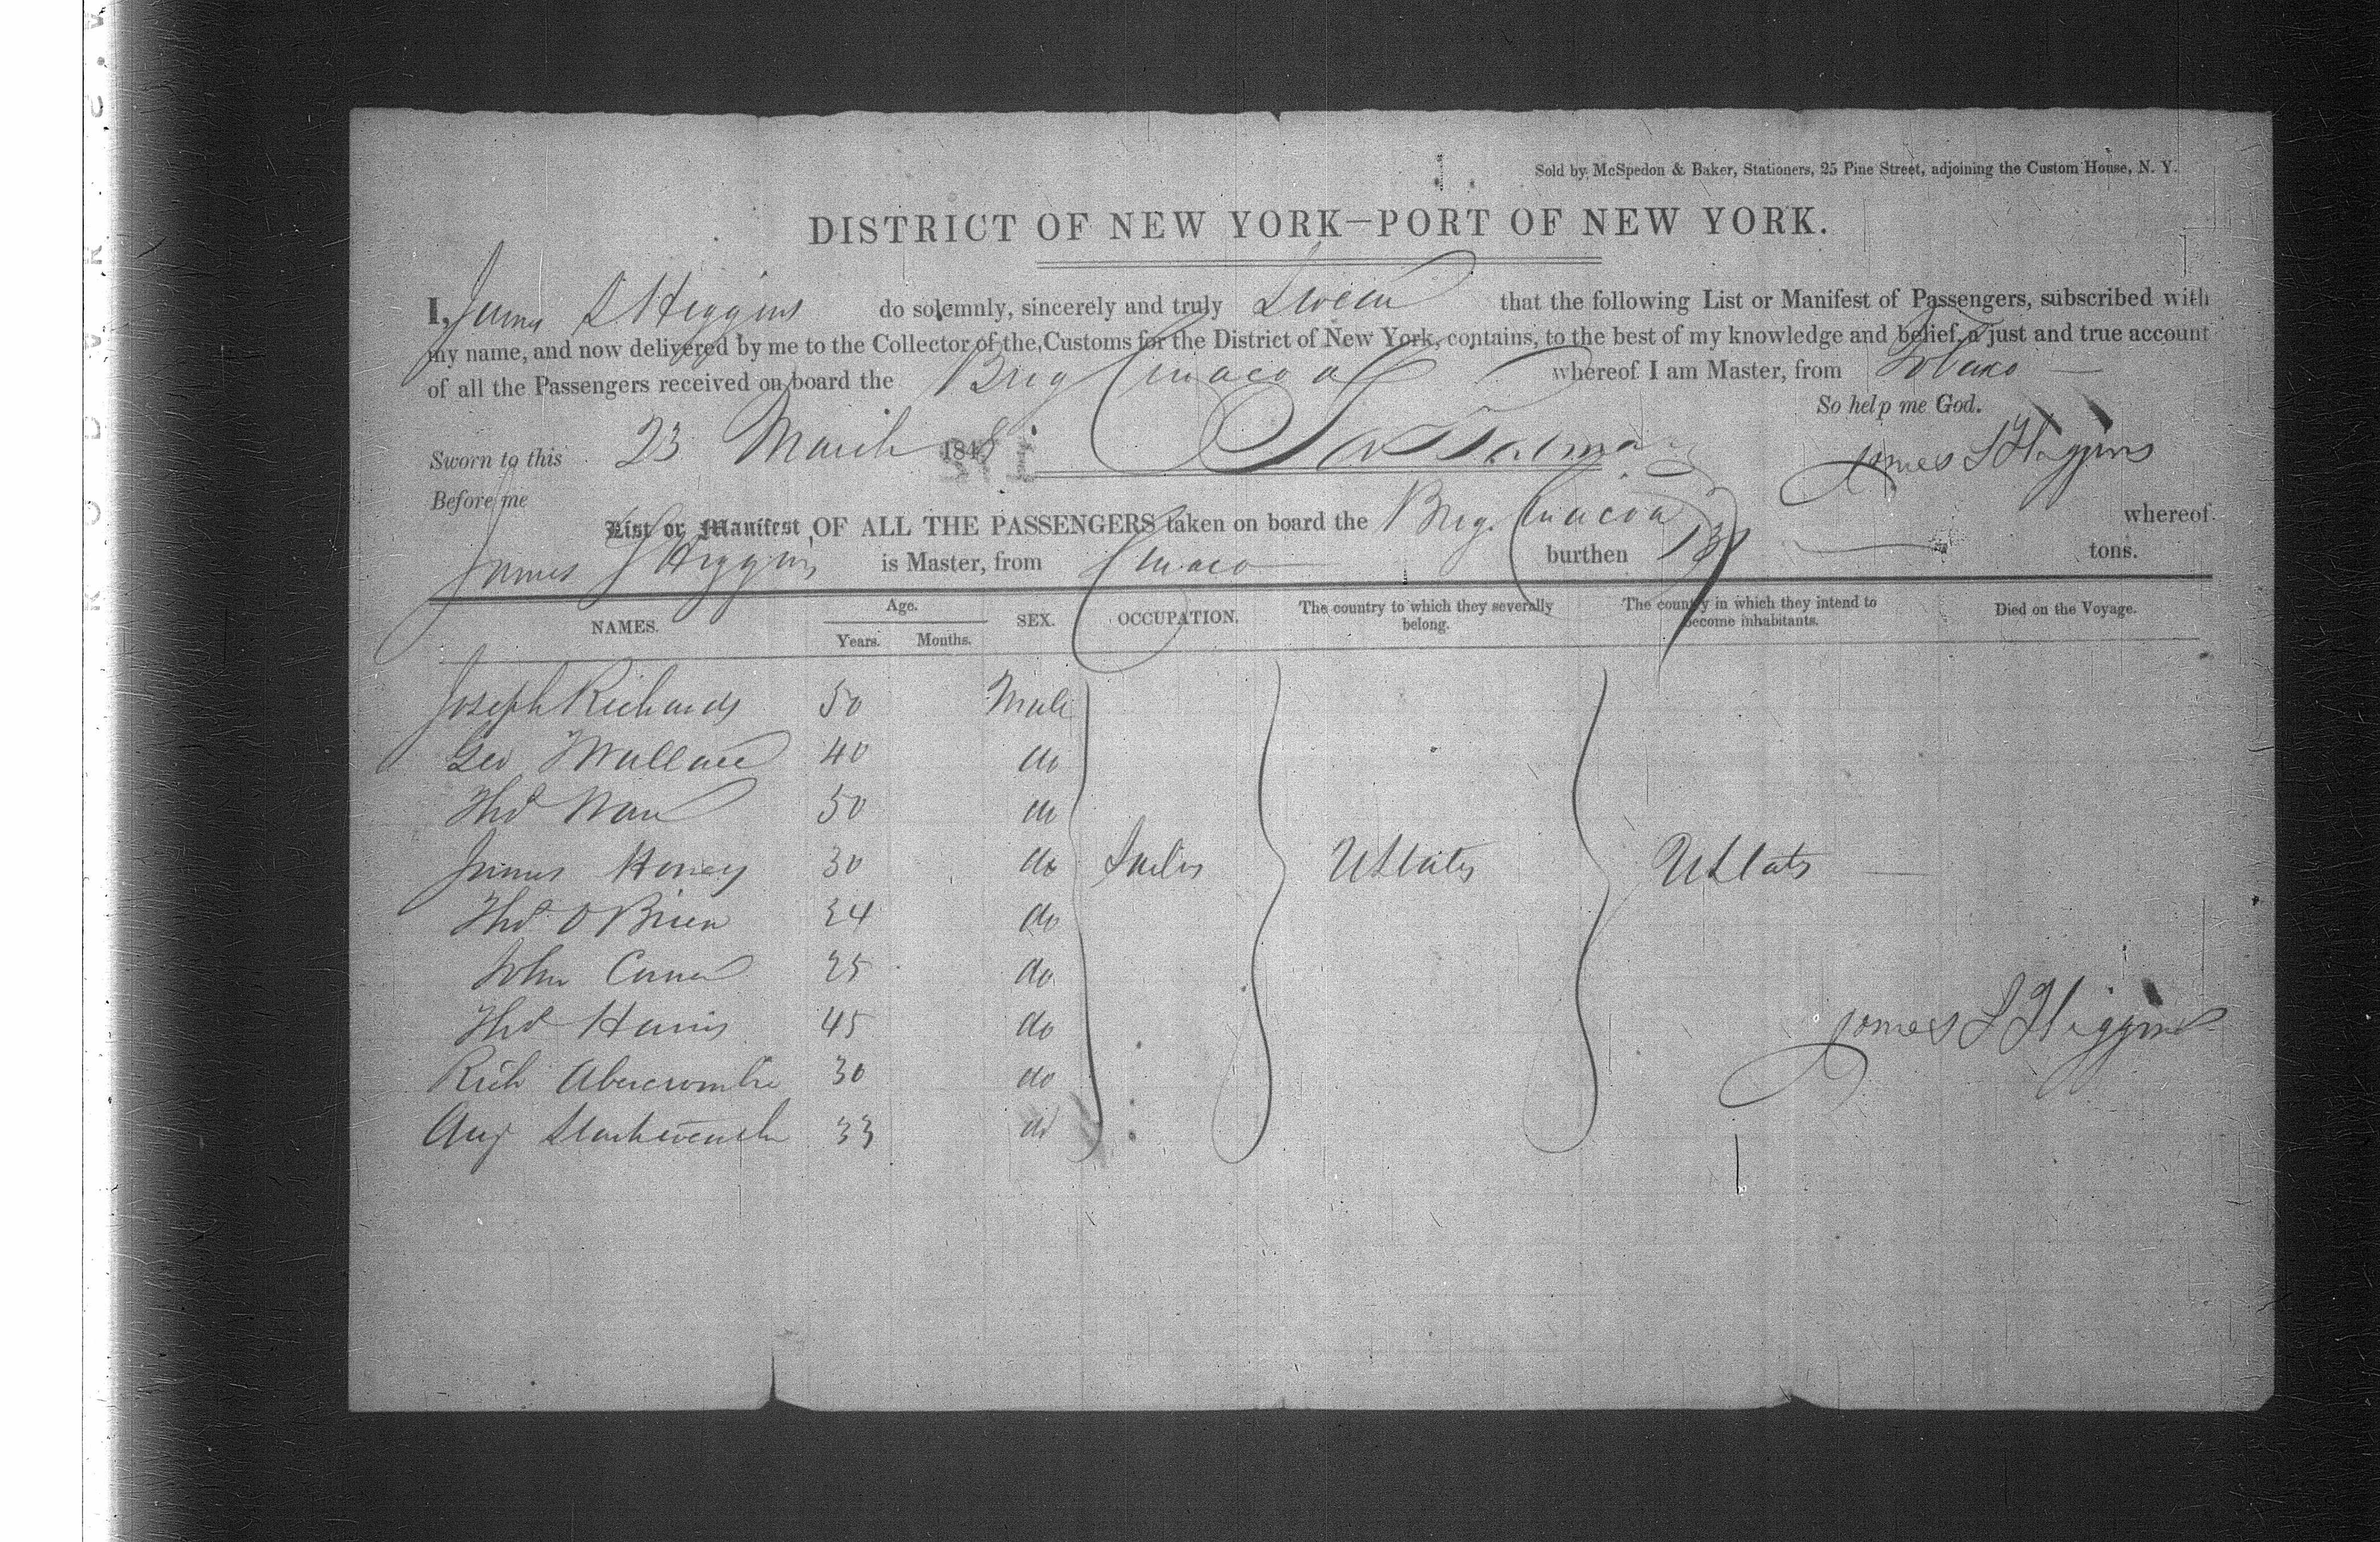 Sold by McSpedon & Baker, Stationers, 25 Pine Street, adjoining the Custom House, N. Y.
DISTRICT OF NEW YORK—PORT OF NEW YORK.
I, James S Higgins do solemnly, sincerely and truly Swear that the following List or Manifest of Passengers, subscribed with
my name, and now delivered by me to the Collector of the Customs for the District of New York, contains, to the best of my knowledge and belief, a just and true account
of all the Passengers received on board the Brig whereof I am Master, from
So help me God.
Sworn to this 23 March 1848
James S Higgins
Before me
List or Manifest OF ALL THE PASSENGERS taken on board the Brig. whereof
James S Higgins is Master, from burthen tons.
NAMES. Age. Years. Months. SEX. OCCUPATION. The country to which they severally belong. The country in which they intend to become inhabitants. Died on the Voyage.
Joseph Richards 50 Male
Geo Wallace 40 do
Thos 50 do
James Honey 30 do Sailors UStates UStats
Thos O Brien 24 do
John 25 do
Thos Harris 45 do
James S Higgins
Rich Abercrombie 30 do
Aug 33 do